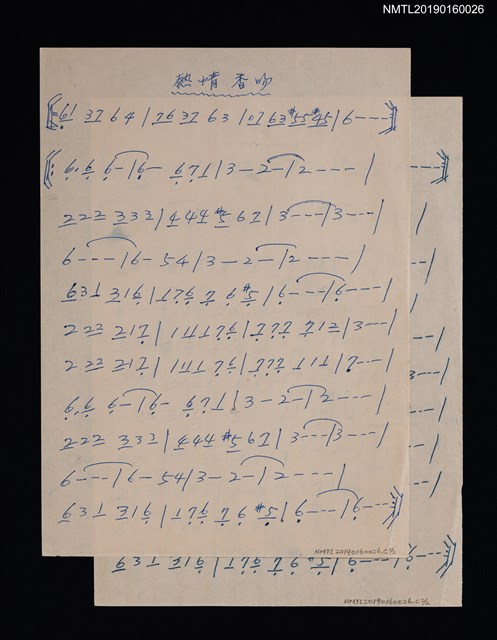 NMTL20190160026
熱情香吻
61 37 64 | 76 37 63 | 07 63 #55 #45 | 6 - - - 
6.6 6 - | 6 - 671 | 3 - 2 - | 2 - - - |
222 333 | 444 #5 67 | 3 - - - | 3 - - - |
6 - - - | 6 - 54 | 3 - 2 - | 2 - - - |
631 316 | 176 7 6 #5 | 6 - - - | 6 - - - |
222 217 | 111 176 | 777 712 | 3 - - - |
222 217 | 111 176 | 777 111 | 7 - - - |
6.6 6 - | 6 - 671 | 3 - 2 - | 2 - - - |
222 333 | 444 #5 67 | 3 - - - | 3 - - - |
6 - - - | 6 - 54 | 3 - 2 - | 2 - - - |
631 316 | 176 7 6 #5 | 6 - - - | 6 - - -
NMTL20190160026.01/2
631 316 | 176 7 6 #5 | 6 - - - | 6 - - -
NMTL20190160026.02/2